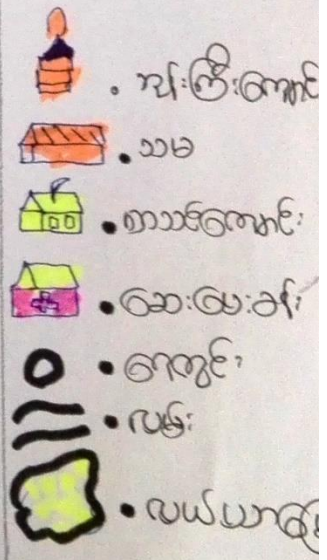 ဘုန်းကြီးကျောင်း
သမ
စာသင်ကျောင်း
ဆေးပေးခန်း
ရေတွင်း
လမ်း
လယ်ယာမြေ